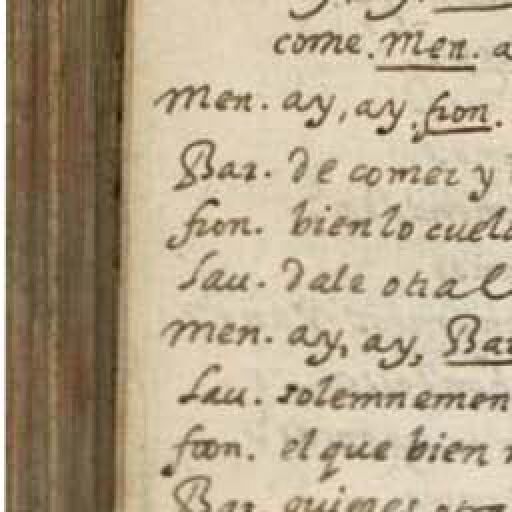 come. Men. a
Men. ay, ay. fron.
Bar. de comer y
fron. bien lo cuela
Lau. dale otra l
Men. ay, ay, Bar
Lau. solemnemen
fron. el que bien
Bar. quieres otra